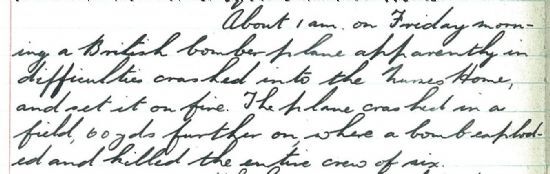 About 1 am. on Friday morn-
ing a British bomber plane apparently in
difficulties crashed into the Nurses Home,
and set it on fire. The plane crashed in a
field, 60 yds further on, where a bomb explod-
ed and killed the entire crew of six.